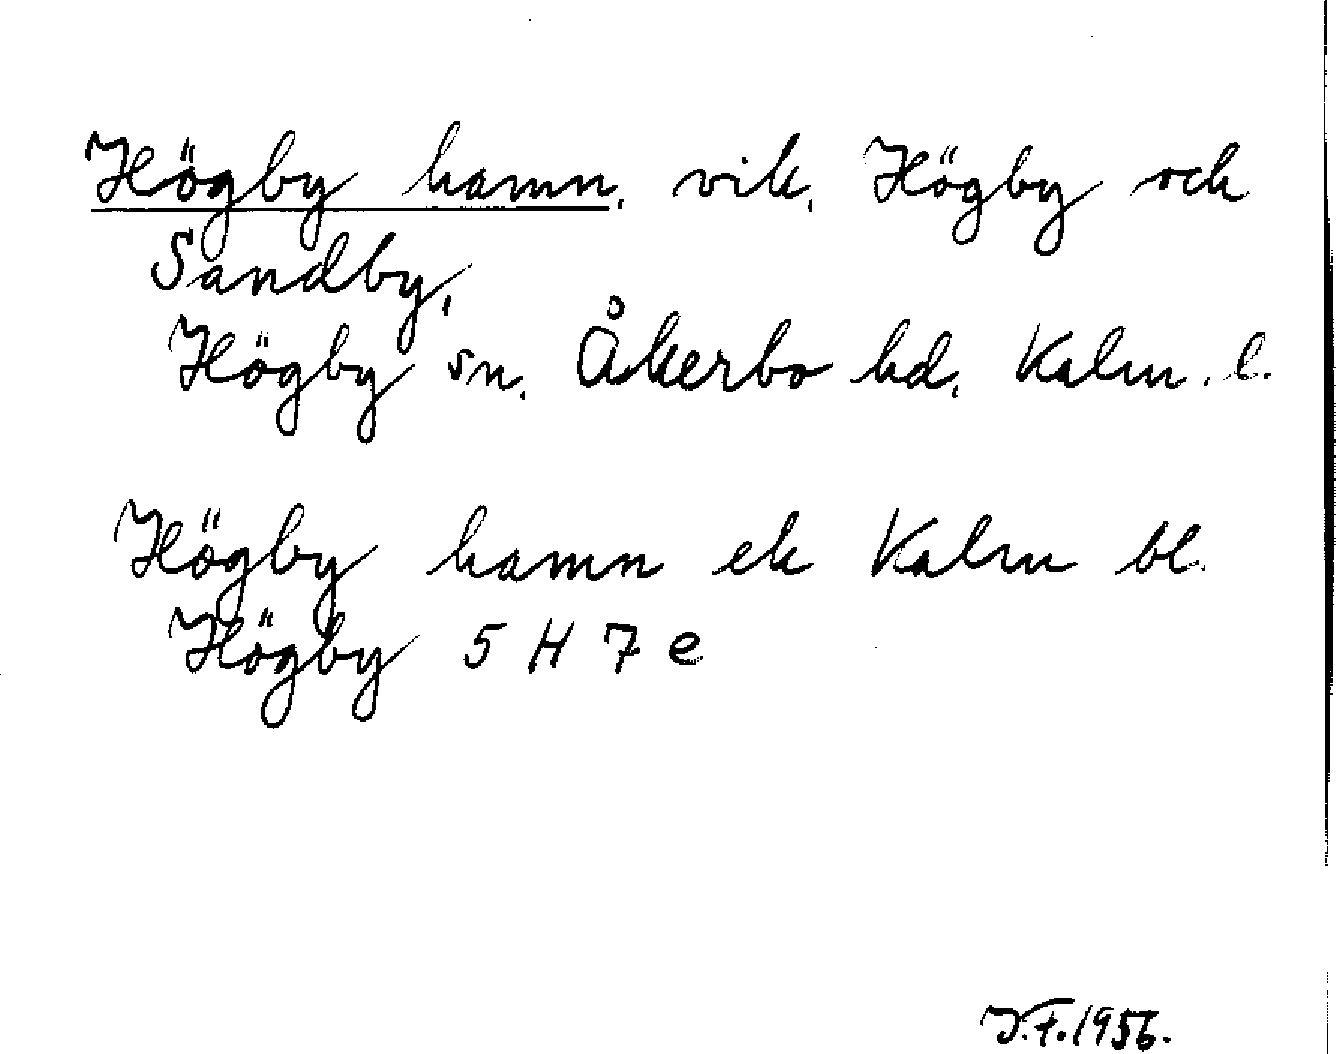 Högby hamn, vik, Högby och
Sandby,
Högby sn, Åkerbo hd, Kalm. l.
Högby hamn ek Kalm bl.
Högby 5 H 7 e
J.F. 1956.